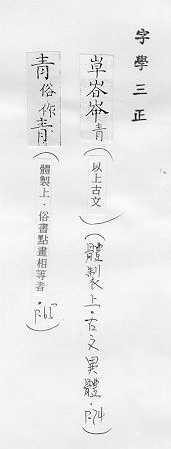 字學三正
青（以上古文）（體製上·古文異體·P.74）
青俗作青（體製上·俗書點畫相等者·P.65）